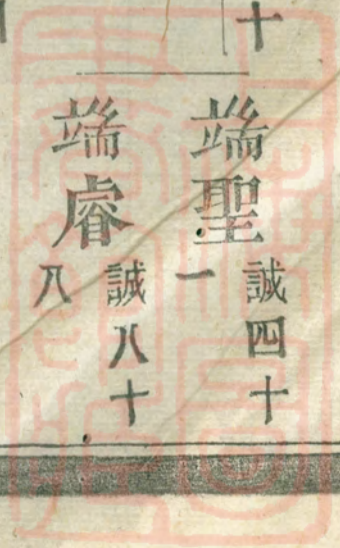 十
端聖
誠四十
一
端睿
誠八十
八